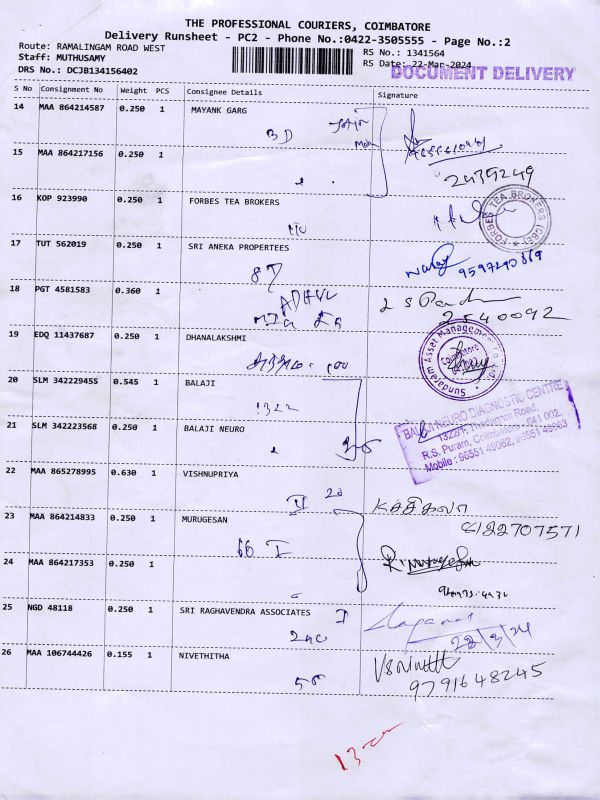 THE PROFESSIONAL COURIERS, COIMBATORE
Delivery Runsheet - PC2 - Phone No.:0422-3505555 - Page No.:2
Route: RAMALINGAM ROAD WEST
RS No.: 1341564
Staff: MUTHUSAMY
RS Date: 22-Mar-2024
DRS No.: DCJB134156402
DOCUMENT DELIVERY
S No Consignment No Weight PCS Consignee Details Signature
14 MAA 864214587 0.250 1 MAYANK GARG
BD
15 MAA 864217156 0.250 1
2439249
16 KOP 923990 0.250 1 FORBES TEA BROKERS
FORBES TEA BROKERS (CBE)
17 TUT 562019 0.250 1 SRI ANEKA PROPERTEES
87
18 PGT 4581583 0.360 1
2540092
19 EDQ 11437687 0.250 1 DHANALAKSHMI
Sundaram Asset Management
Coimbatore
20 SLM 342229455 0.545 1 BALAJI
1322
BALAJI NEURO DIAGNOSTIC CENTRE
1322/1, Thadagam Road,
R.S. Puram, Coimbatore - 641 002.
Mobile : 96551 49062, 96551 49063
21 SLM 342223568 0.250 1 BALAJI NEURO
22 MAA 865278995 0.630 1 VISHNUPRIYA
II 20
8122707571
23 MAA 864214833 0.250 1 MURUGESAN
66 I
24 MAA 864217353 0.250 1
25 NGD 48118 0.250 1 SRI RAGHAVENDRA ASSOCIATES
22/3/24
26 MAA 106744426 0.155 1 NIVETHITHA
9791648245